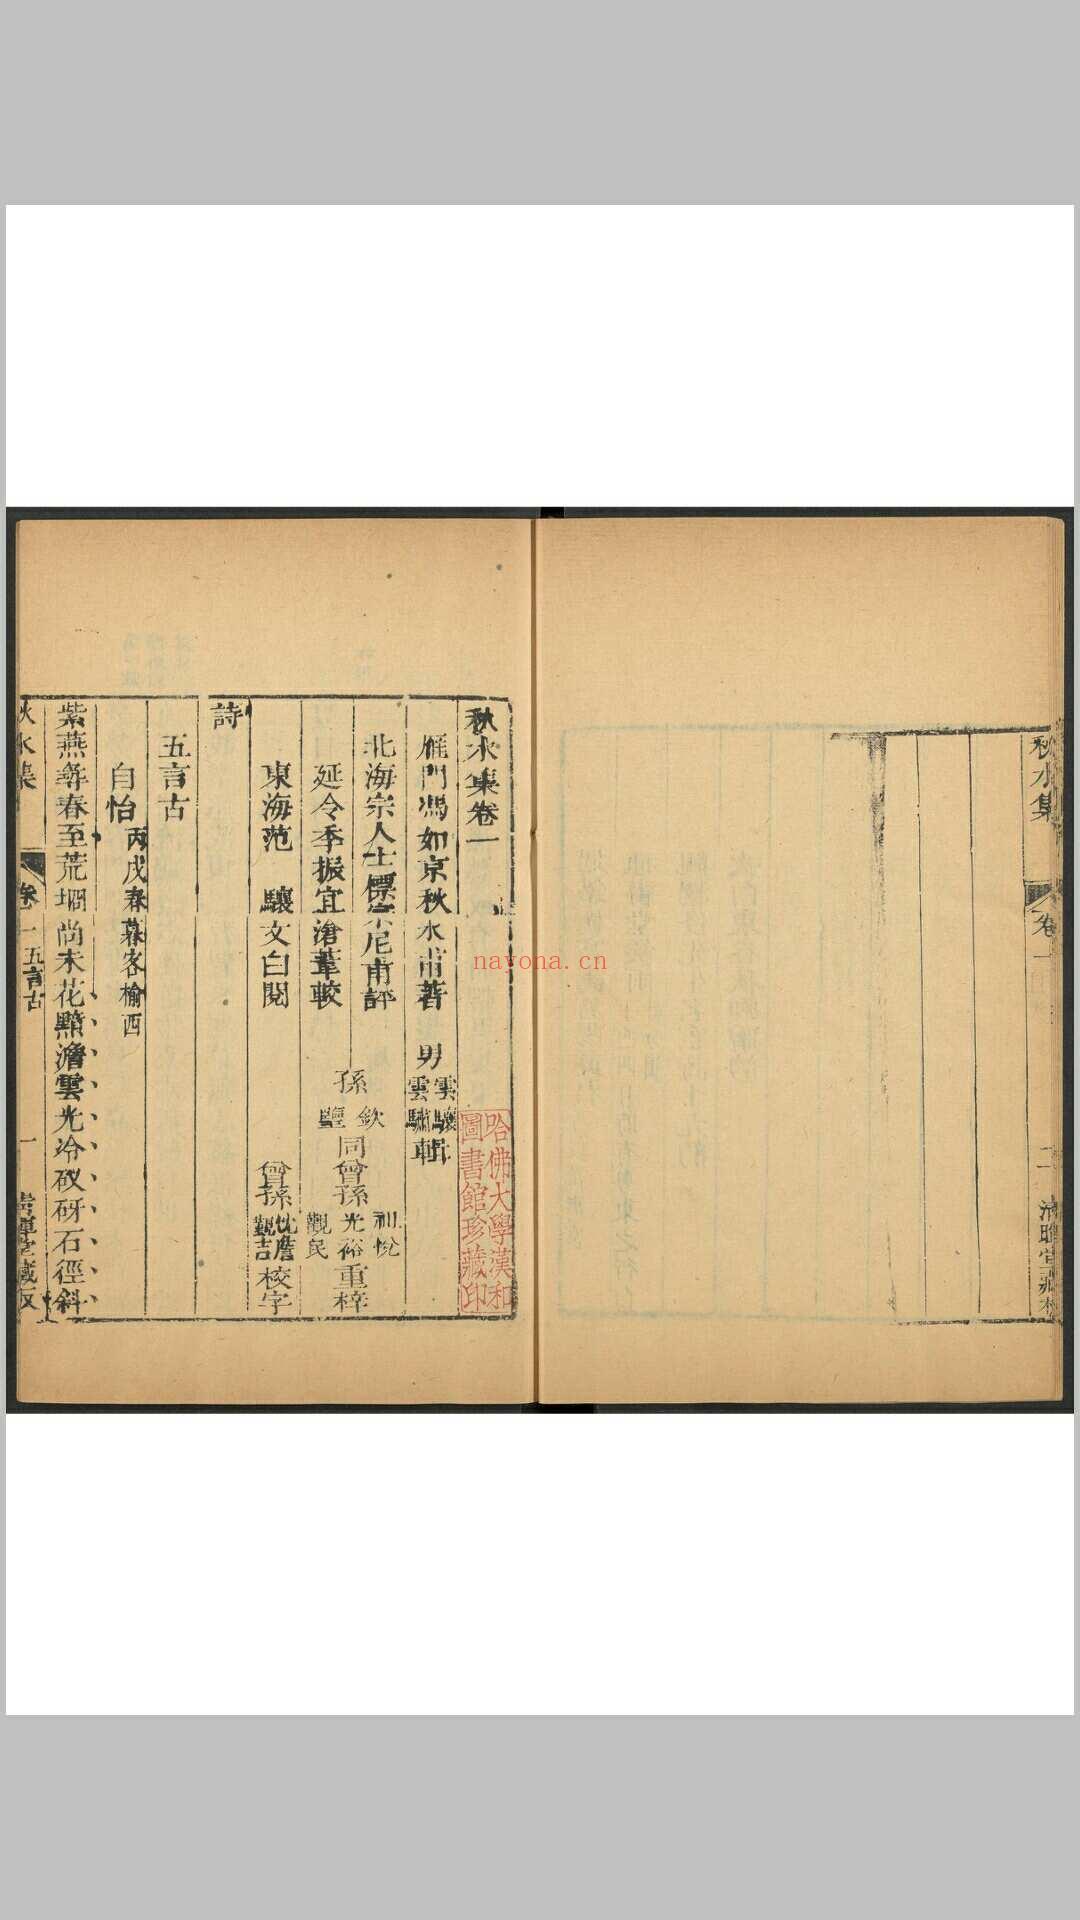 秋水集
卷一
二
秋水集卷一
雁門馮如京秋水甫著　男雲驤雲驌輯
北海宗人士標宗尼甫評
延令季振宜滄葦較　孫欽鹽同曾孫光裕觀民重梓
東海范　驤文白閱　曾孫觀吉校字
詩
五言古
自怡丙戌春暮客榆西
紫燕彝春至荒堋尚未花點澹雲光冷砑石徑斜
秋水集
卷一　五言古
一
哈佛大學漢和
圖書館珍藏印
nayona.cn